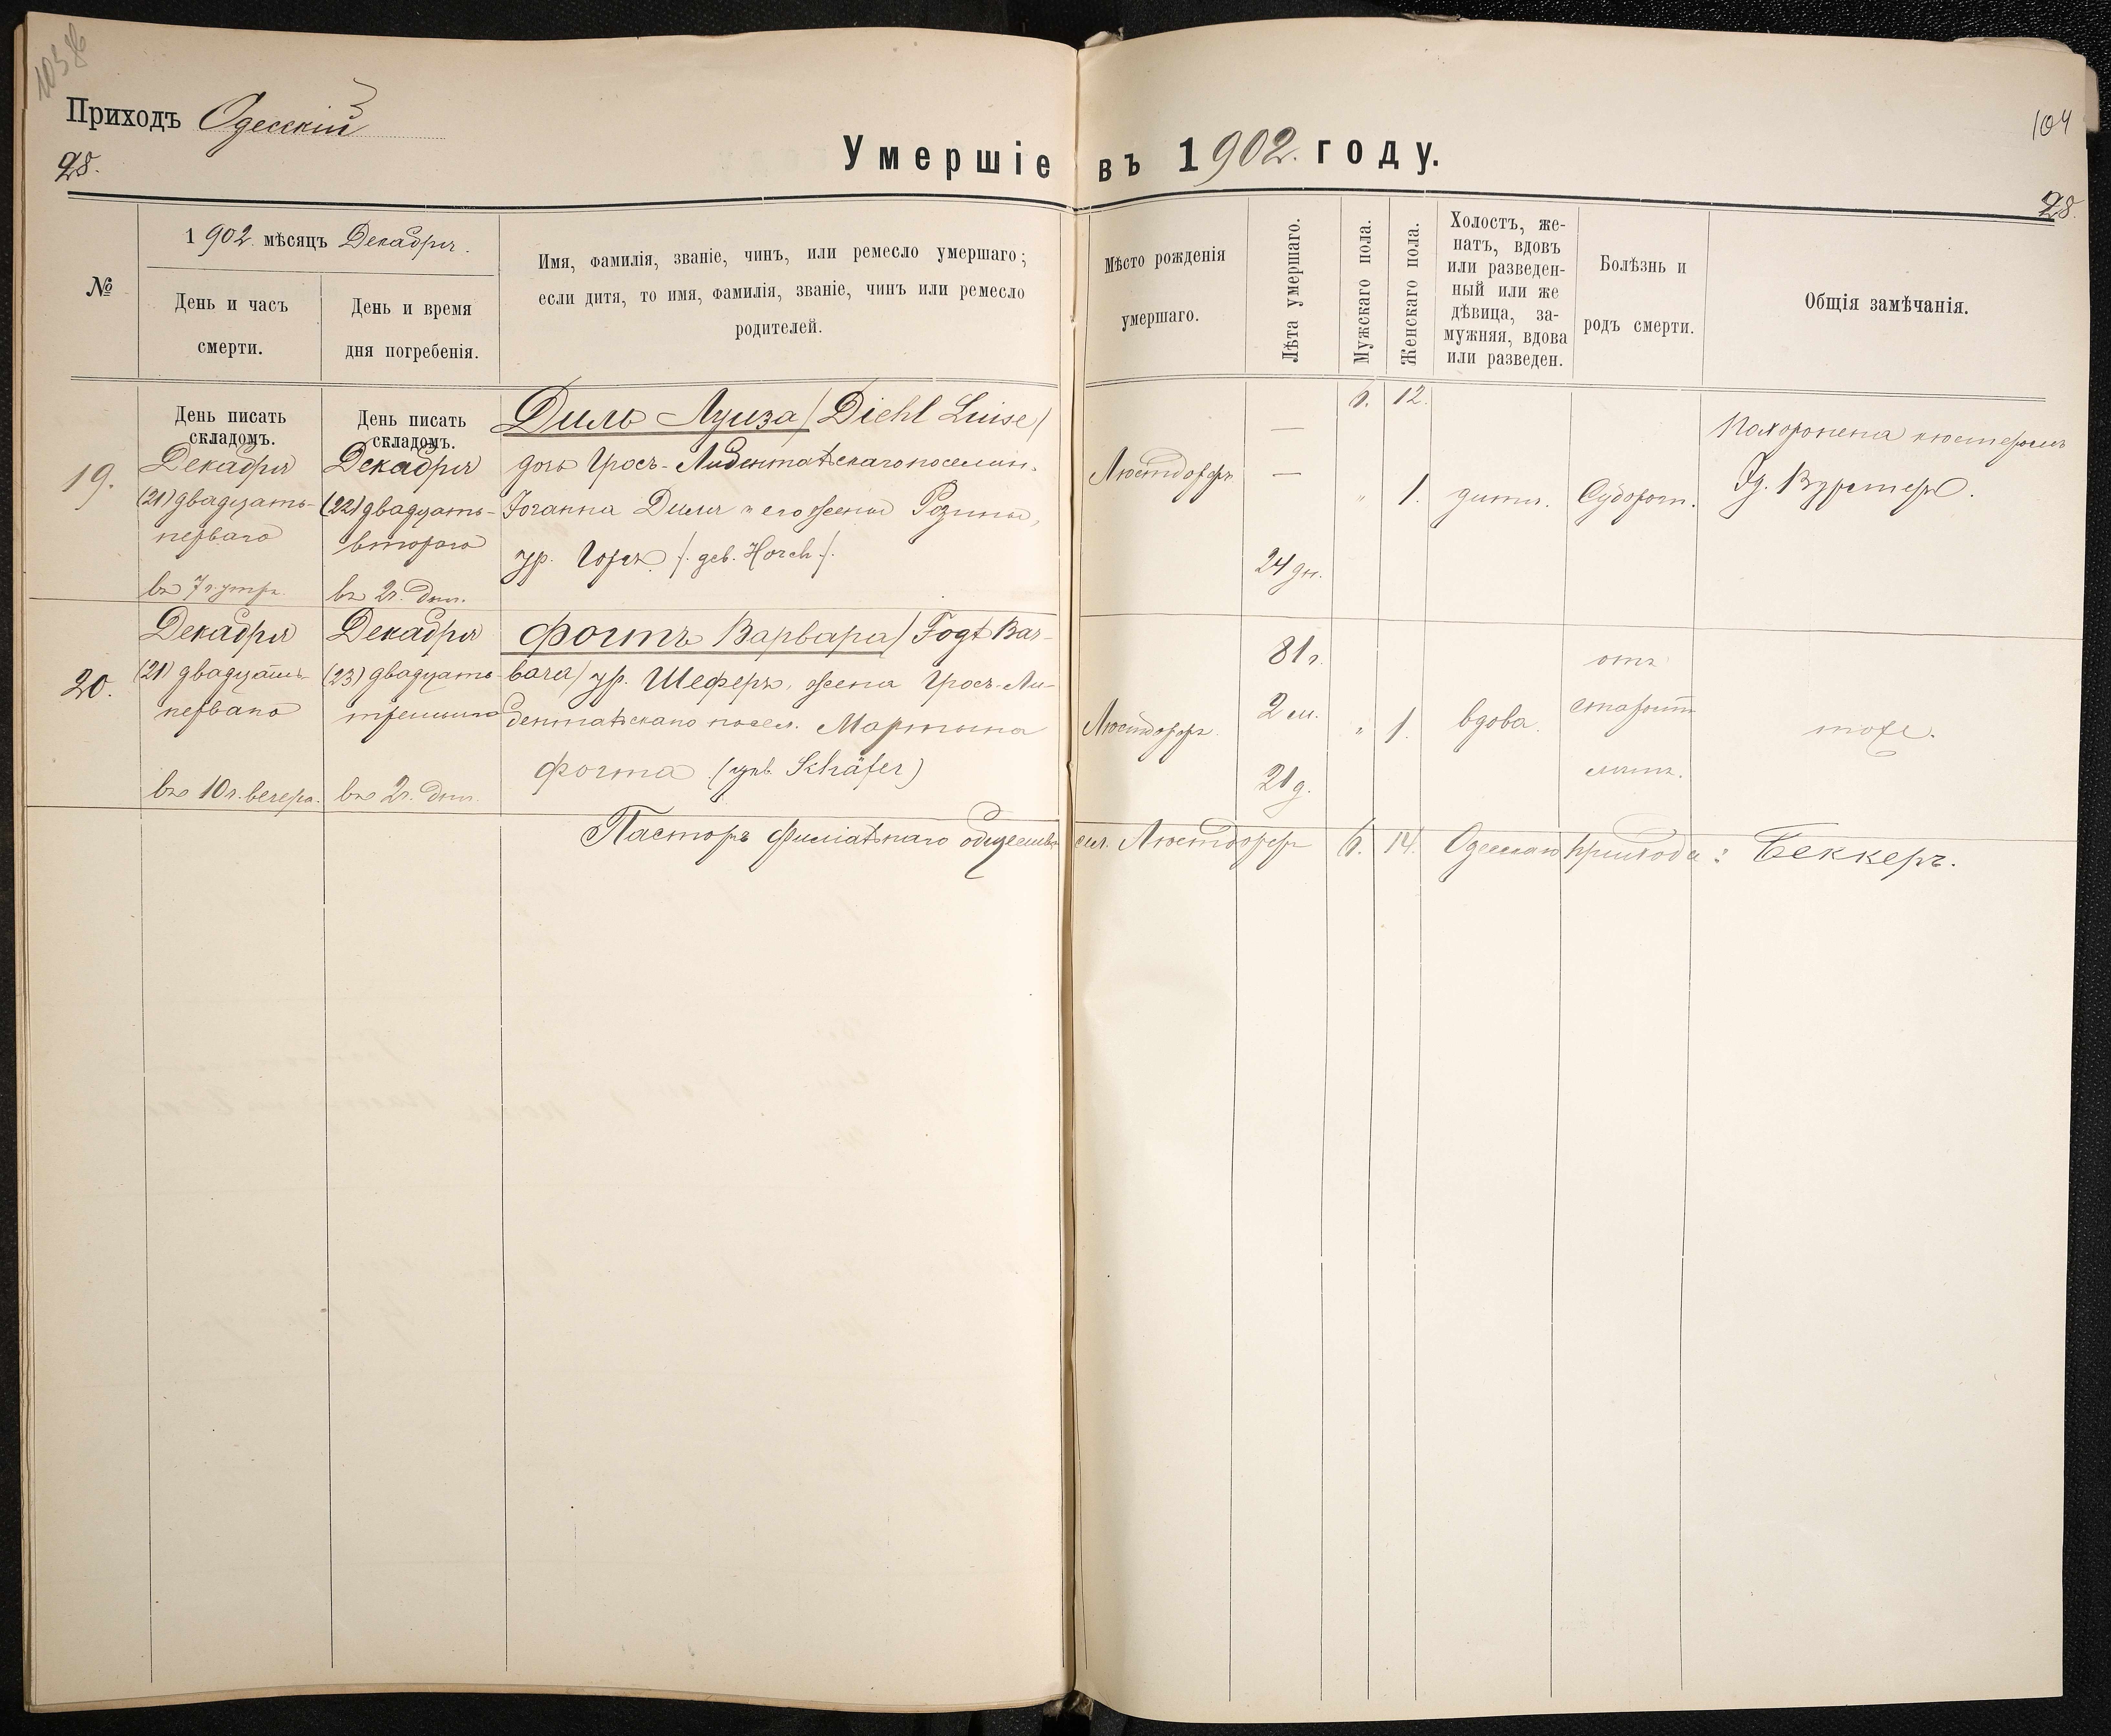 103 об
Приходъ Одесскій
28.
Умершіе въ 1902. году.
104
28.
№
1902. мѣсяцъ Декабря.
День и часъ
смерти.
День и время
дня погребенія.
Имя, фамилія, званіе, чинъ, или ремесло умершаго;
если дитя, то имя, фамилія, званіе, чинъ или ремесло
родителей.
Мѣсто рожденія
умершаго.
Лѣта умершаго.
Мужскаго пола.
Женскаго пола.
Холостъ, же-
натъ, вдовъ
или разведен-
ный или же
дѣвица, за-
мужняя, вдова
или разведен.
Болѣзнь и
родъ смерти.
Общія замѣчанія.
День писать
складомъ.
День писать
складомъ.
6. 12.
19.
Декабря
(21) двадцать-
перваго
въ 7 ч. утра.
Декабря
(22) двадцать-
второго
въ 2 ч. дня.
Диль Луиза / Diehl Luise /
дочь Гросъ-Либентальскаго поселян.
Іоганна Диля и его жены Розины,
ур. Горхъ /. geb. Horch ./.
Люстдорфъ
—
—
24 дн.
" 1.
дитя.
Судороги.
Похоронена кюстеромъ
Эд. Вурстеръ.
20.
Декабря
(21) двадцать-
перваго
въ 10 ч. вечера.
Декабря
(23) двадцать-
третьяго
въ 2 ч. дня.
Фогтъ Варвара / Fogt Bar-
bara / ур. Шеферъ, жена Гросъ-Ли-
бентальскаго посел. Мартына
Фогта (geb. Schäfer)
Люстдорфъ.
81 г.
2 м.
21 д.
" 1.
вдова.
отъ
старости
лѣтъ.
тоже.
Пасторъ филіальнаго общества сел. Люстдорфъ 6. 14. Одесскаго прихода: Беккеръ.